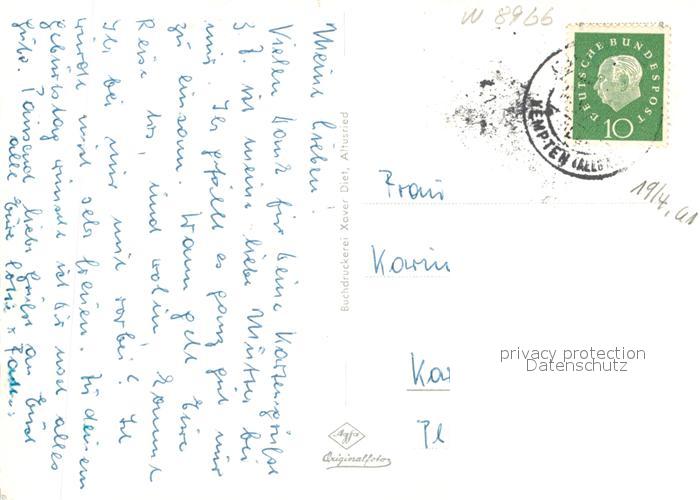 Meine Lieben!
Vielen Dank für deine Kartengrüße
z. Z. ist meine liebe Mutter bei
mir. Ihr gefällt es ganz gut nur
zu einsam. Wann geht Eure
Reise los, und wohin, kommt
Ihr bei mir mit vorbei? Ich
würde mich sehr freuen. Zu deinem
Geburtstag wünsche ich dir noch alles
gute. Tausend liebe Grüße an Euch
alle Eure
Buchdruckerei Xaver Diet, Altusried
Agfa
Originalfoto
W 8966
DEUTSCHE BUNDESPOST
10
KEMPTEN (ALLG
19/4. 61
Frau
Karin
Ka
Pl
privacy protection
Datenschutz